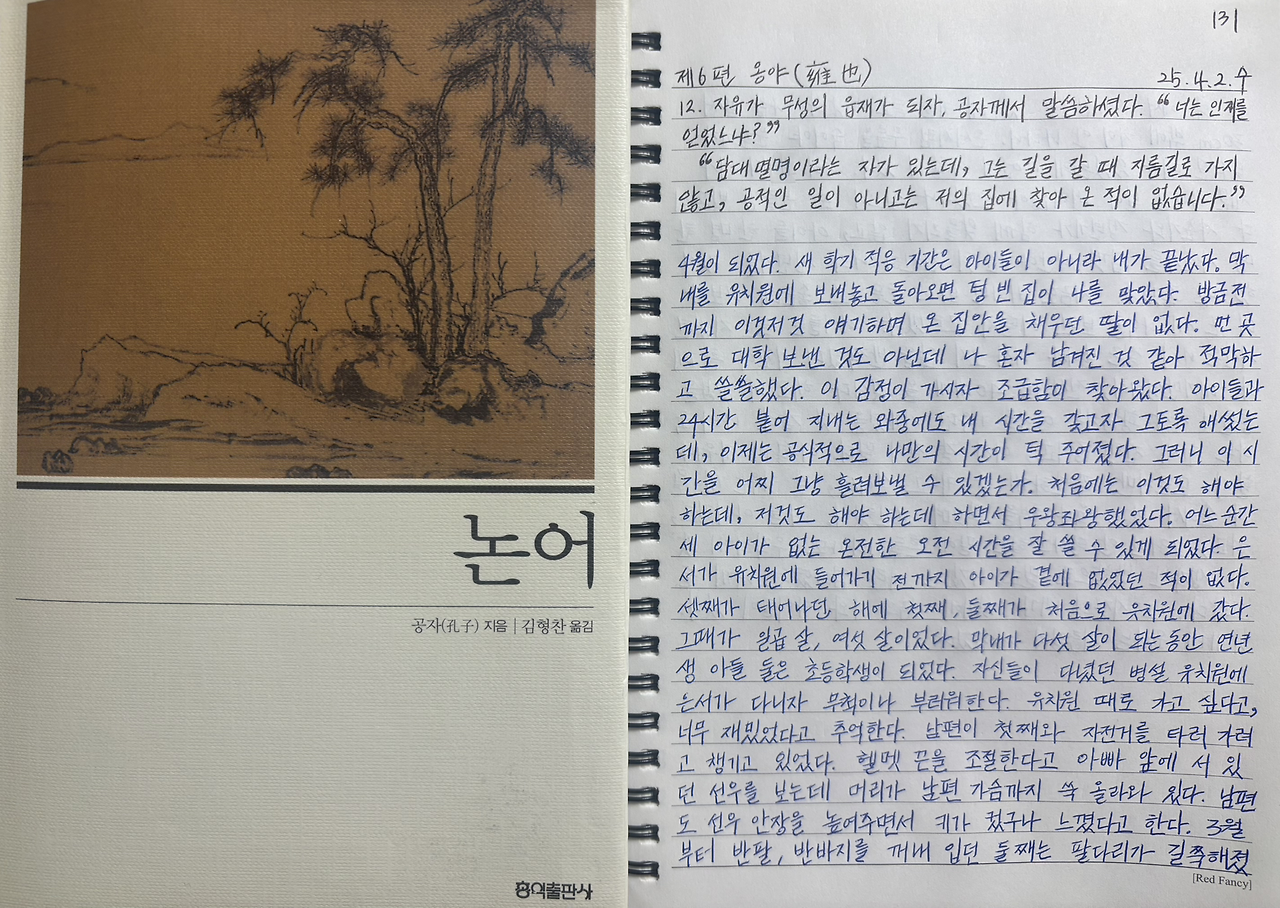 논어
공자(孔子) 지음 | 김형찬 옮김
홍익출판사
131
제6편 옹야(雍也) 25.4.2.수
12. 자유가 무성의 읍재가 되자, 공자께서 말씀하셨다. “너는 인재를
얻었느냐?”
“담대멸명이라는 자가 있는데, 그는 길을 갈 때 지름길로 가지
않고, 공적인 일이 아니고는 저의 집에 찾아 온 적이 없습니다.”
4월이 되었다. 새 학기 적응 기간은 아이들이 아니라 내가 끝났다. 막
내를 유치원에 보내놓고 돌아오면 텅 빈 집이 나를 맞았다. 방금전
까지 이것저것 얘기하며 온 집안을 채우던 딸이 없다. 먼 곳
으로 대학 보낸 것도 아닌데 나 혼자 남겨진 것 같아 적막하
고 쓸쓸했다. 이 감정이 가시자 조급함이 찾아왔다. 아이들과
24시간 붙어 지내는 와중에도 내 시간을 갖고자 그토록 애썼는
데, 이제는 공식적으로 나만의 시간이 턱 주어졌다. 그러니 이 시
간을 어찌 그냥 흘려보낼 수 있겠는가. 처음에는 이것도 해야
하는데, 저것도 해야 하는데 하면서 우왕좌왕했었다. 어느순간
세 아이가 없는 온전한 오전 시간을 잘 쓸 수 있게 되었다. 은
서가 유치원에 들어가기 전까지 아이가 곁에 없었던 적이 없다.
셋째가 태어나던 해에 첫째, 둘째가 처음으로 유치원에 갔다.
그때가 일곱 살, 여섯 살이었다. 막내가 다섯 살이 되는동안 연년
생 아들 둘은 초등학생이 되었다. 자신들이 다녔던 병설 유치원에
은서가 다니자 무척이나 부러워한다. 유치원 때로 가고 싶다고,
너무 재밌었다고 추억한다. 남편이 첫째와 자전거를 타러 가려
고 챙기고 있었다. 헬멧 끈을 조절한다고 아빠 앞에 서 있
던 선우를 보는데 머리가 남편 가슴까지 쑥 올라와 있다. 남편
도 선우 안장을 높여주면서 키가 컸구나 느꼈다고 한다. 3월
부터 반팔, 반바지를 꺼내 입던 둘째는 팔다리가 길쭉해졌
[Red Fancy]